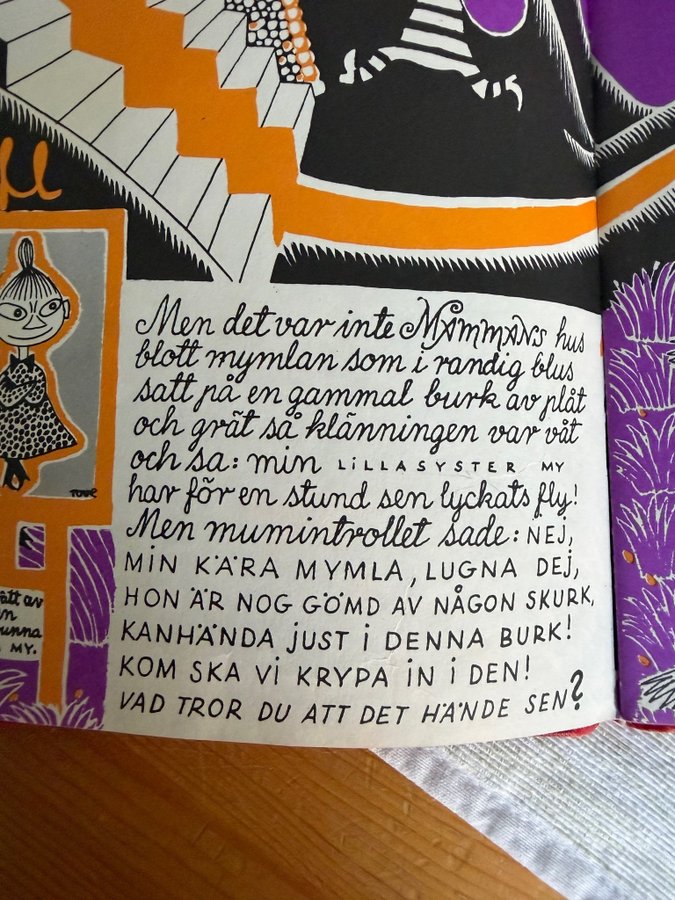 Men det var inte MAMMANS hus
blott mymlan som i randig blus
satt på en gammal burk av plåt
och grät så klänningen var våt
och sa: min LILLASYSTER MY
har för en stund sen lyckats fly!
Men mumintrollet sade: NEJ,
MIN KÄRA MYMLA, LUGNA DEJ,
HON ÄR NOG GÖMD AV NÅGON SKURK,
KANHÄNDA JUST I DENNA BURK!
KOM SKA VI KRYPA IN I DEN!
VAD TROR DU ATT DET HÄNDE SEN?
TOVE
av
unna
MY.